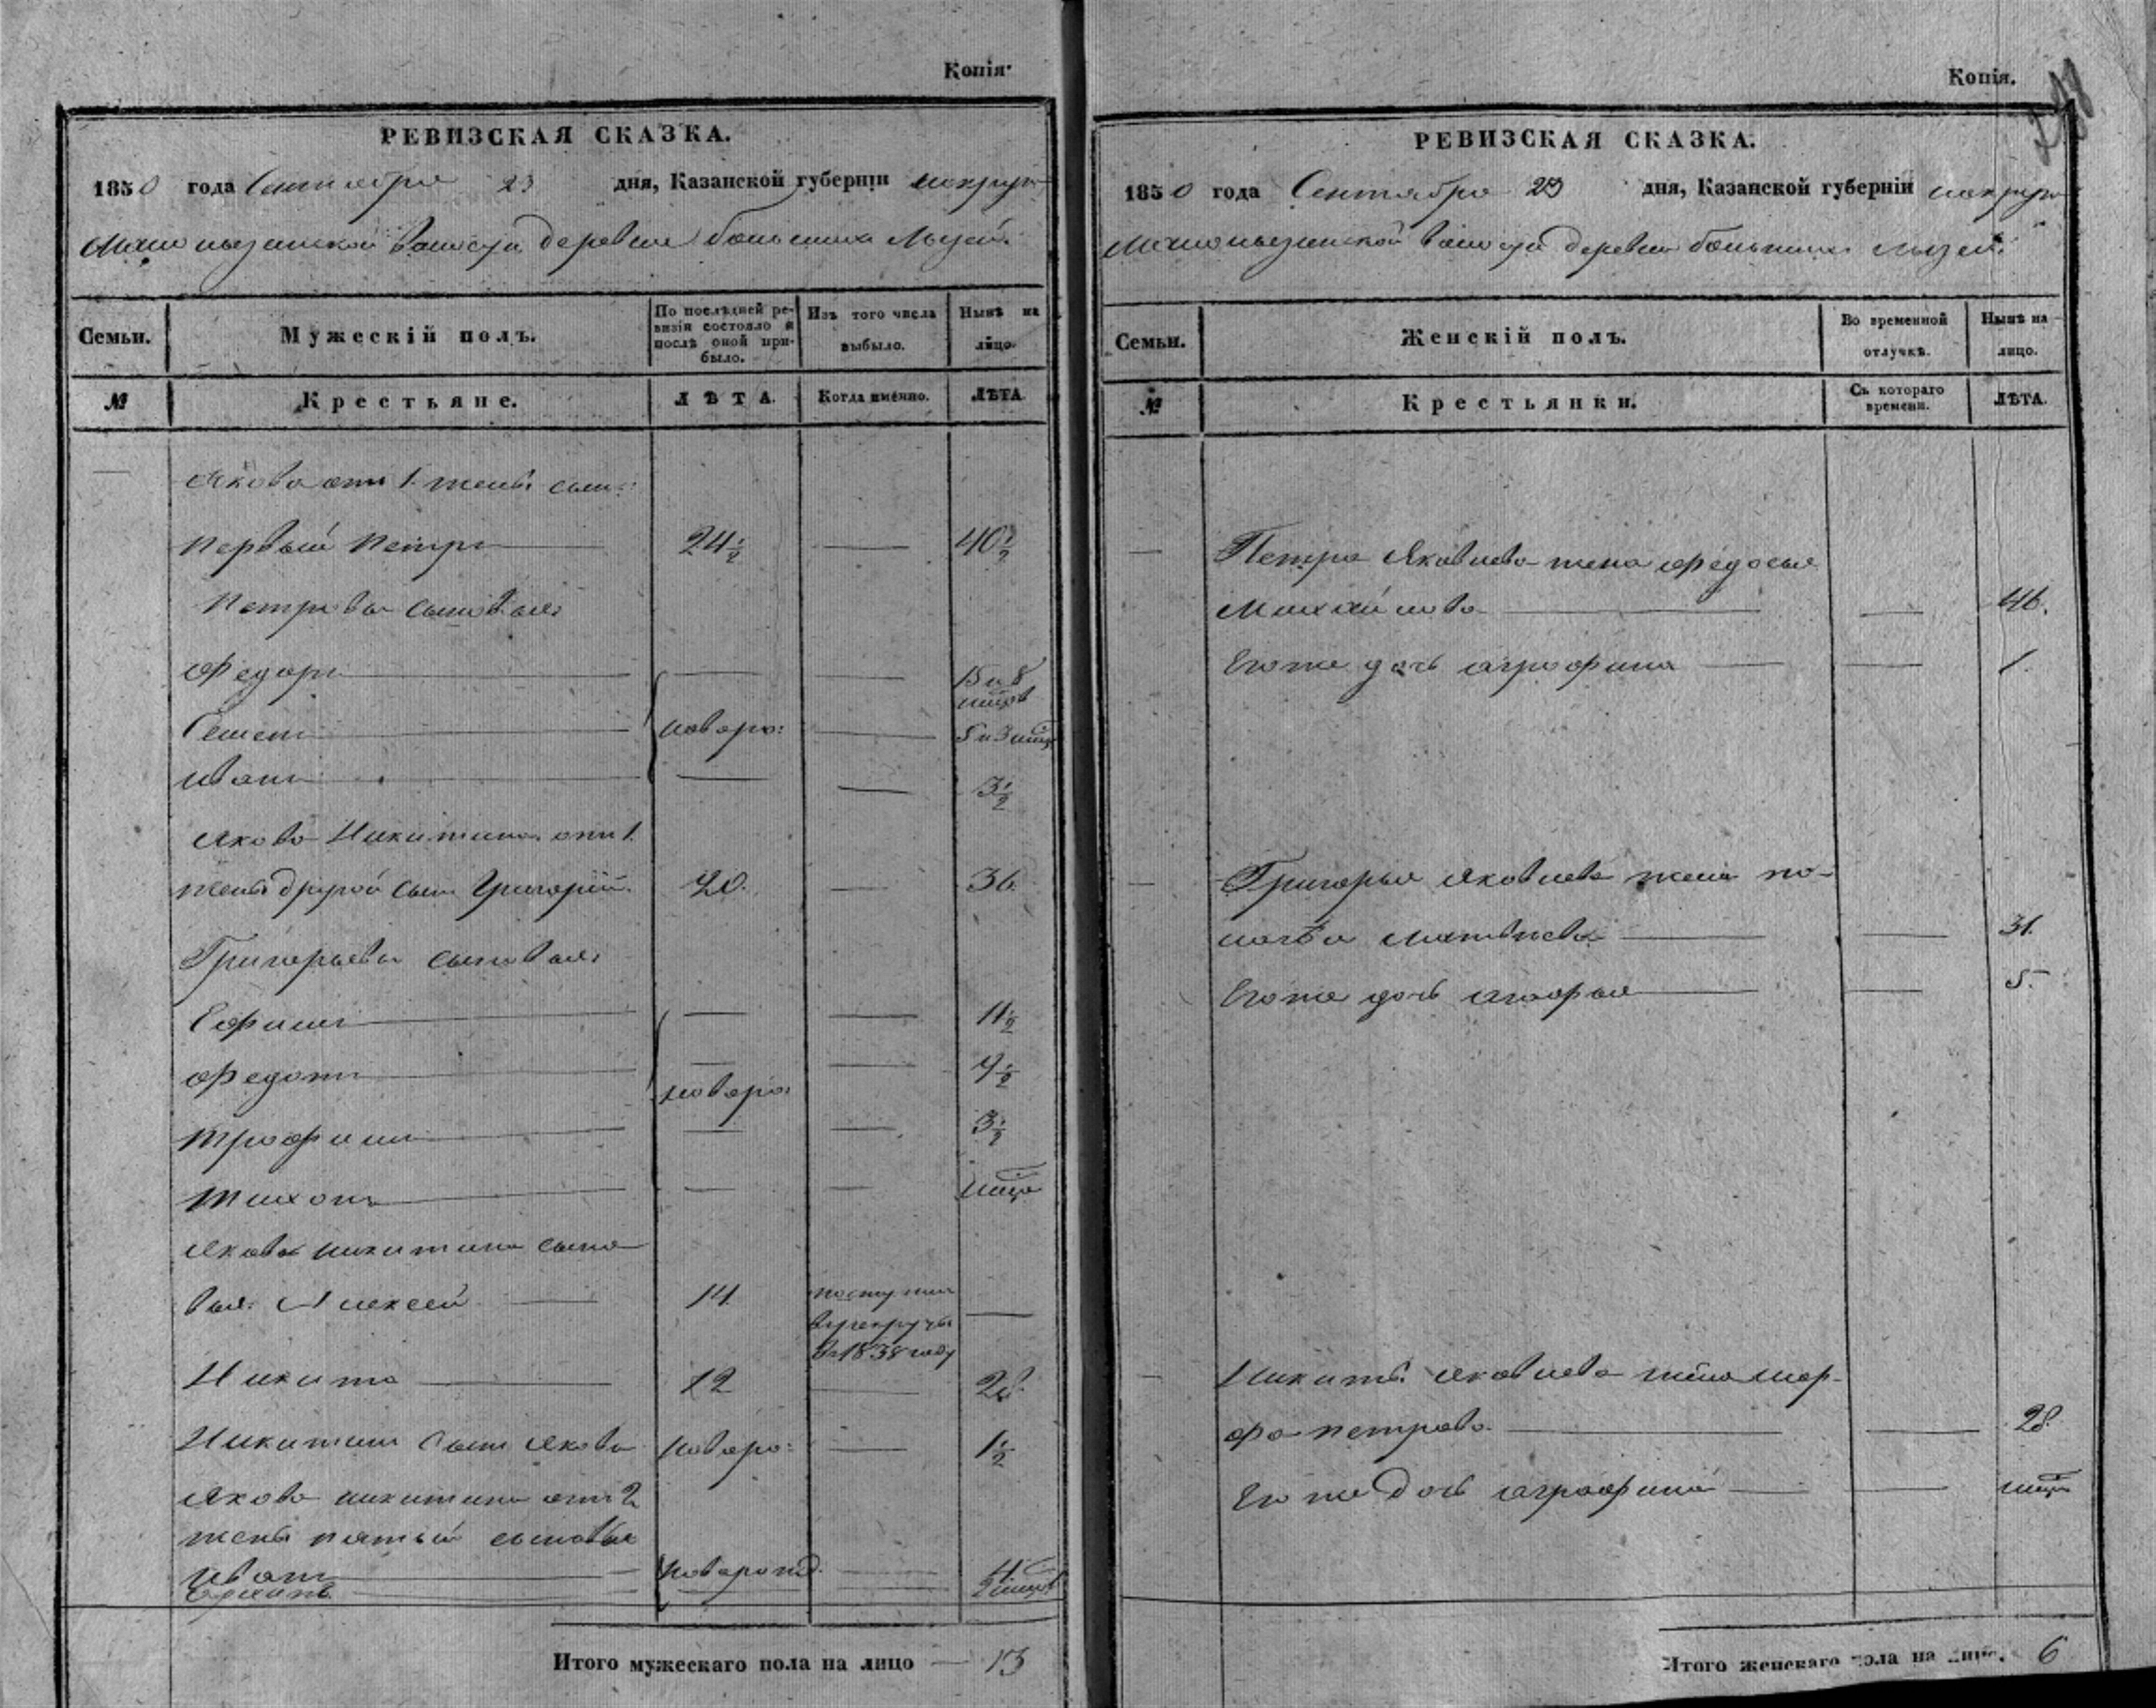 Копія.
РЕВИЗСКАЯ СКАЗКА.
1850 года Сентября 23 дня, Казанской губерніи
волости деревни большихъ
Семьи.
Мужескій полъ.
По послѣдней ревизіи состояло и послѣ оной прибыло.
Изъ того числа выбыло.
Нынѣ на лицо.
№
Крестьяне.
ЛѢТА.
Когда именно.
ЛѢТА.
Якова отъ 1. жены сын:
первый Петръ 24½ 40½
Петровы сыновья:
Федоръ 15 и 8
Семенъ новоро: 5 и 3
Иванъ 3½
Якова Никитина отъ 1.
жены другой сынъ Григорій. 20. 36
Григорьевы сыновья:
Ефимъ 11½
Федотъ новоро:
Трофимъ 3½
Тихонъ
Якова Никитина сыно
вья: Алексей 14 поступил
в рекруты
в 1838 году
Никита 12 28.
Никитин сынъ Яковъ новоро: 1½
Якова Никитина отъ 2
жены пятый сыновья
Иванъ новорожд. 4
Итого мужескаго пола на лицо — 13
Копія.
РЕВИЗСКАЯ СКАЗКА.
1850 года Сентября 23 дня, Казанской губерніи
волости деревни большихъ
Семьи.
Женскій полъ.
Во временной отлучкѣ.
Нынѣ на лицо.
№
Крестьянки.
Съ котораго времени.
ЛѢТА.
Петра Яковлева жена Федосья
Михайлова 46.
Его же дочь Аграфина 1.
Григорья Яковлева жена по-
Матвѣева 31.
Его же дочь 5.
Никиты Яковлева жена Мар-
фа Петрова 28.
Его же дочь Аграфина
Итого женскаго пола на лицо. 6